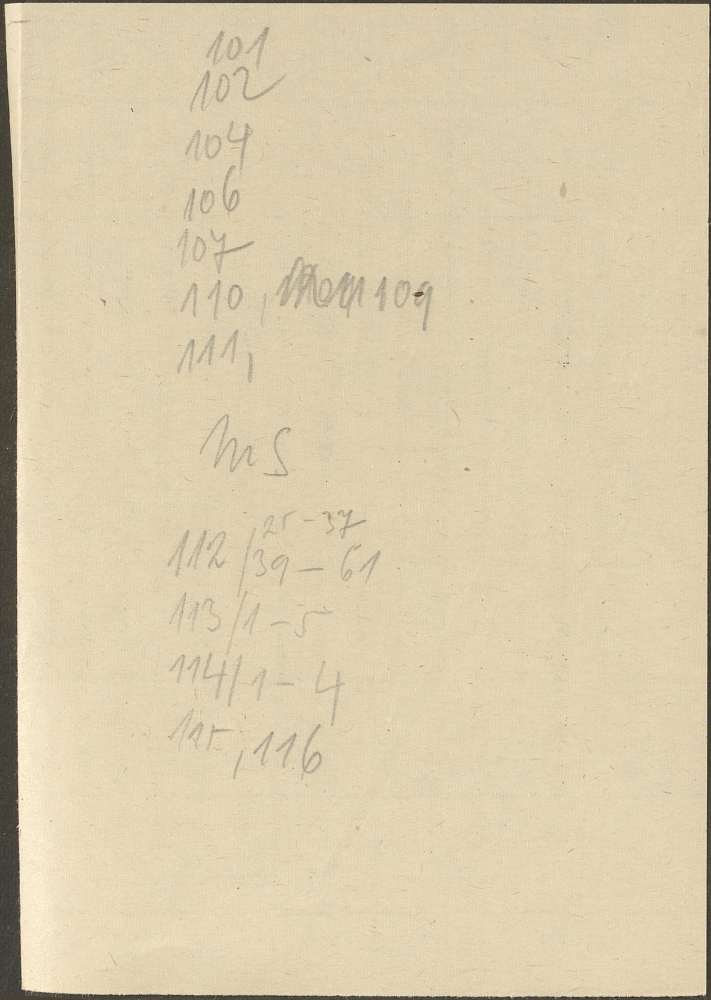 101
102
104
106
107
110, 109
111,
MS
25-37
112/39-61
113/1-5
114/1-4
115, 116